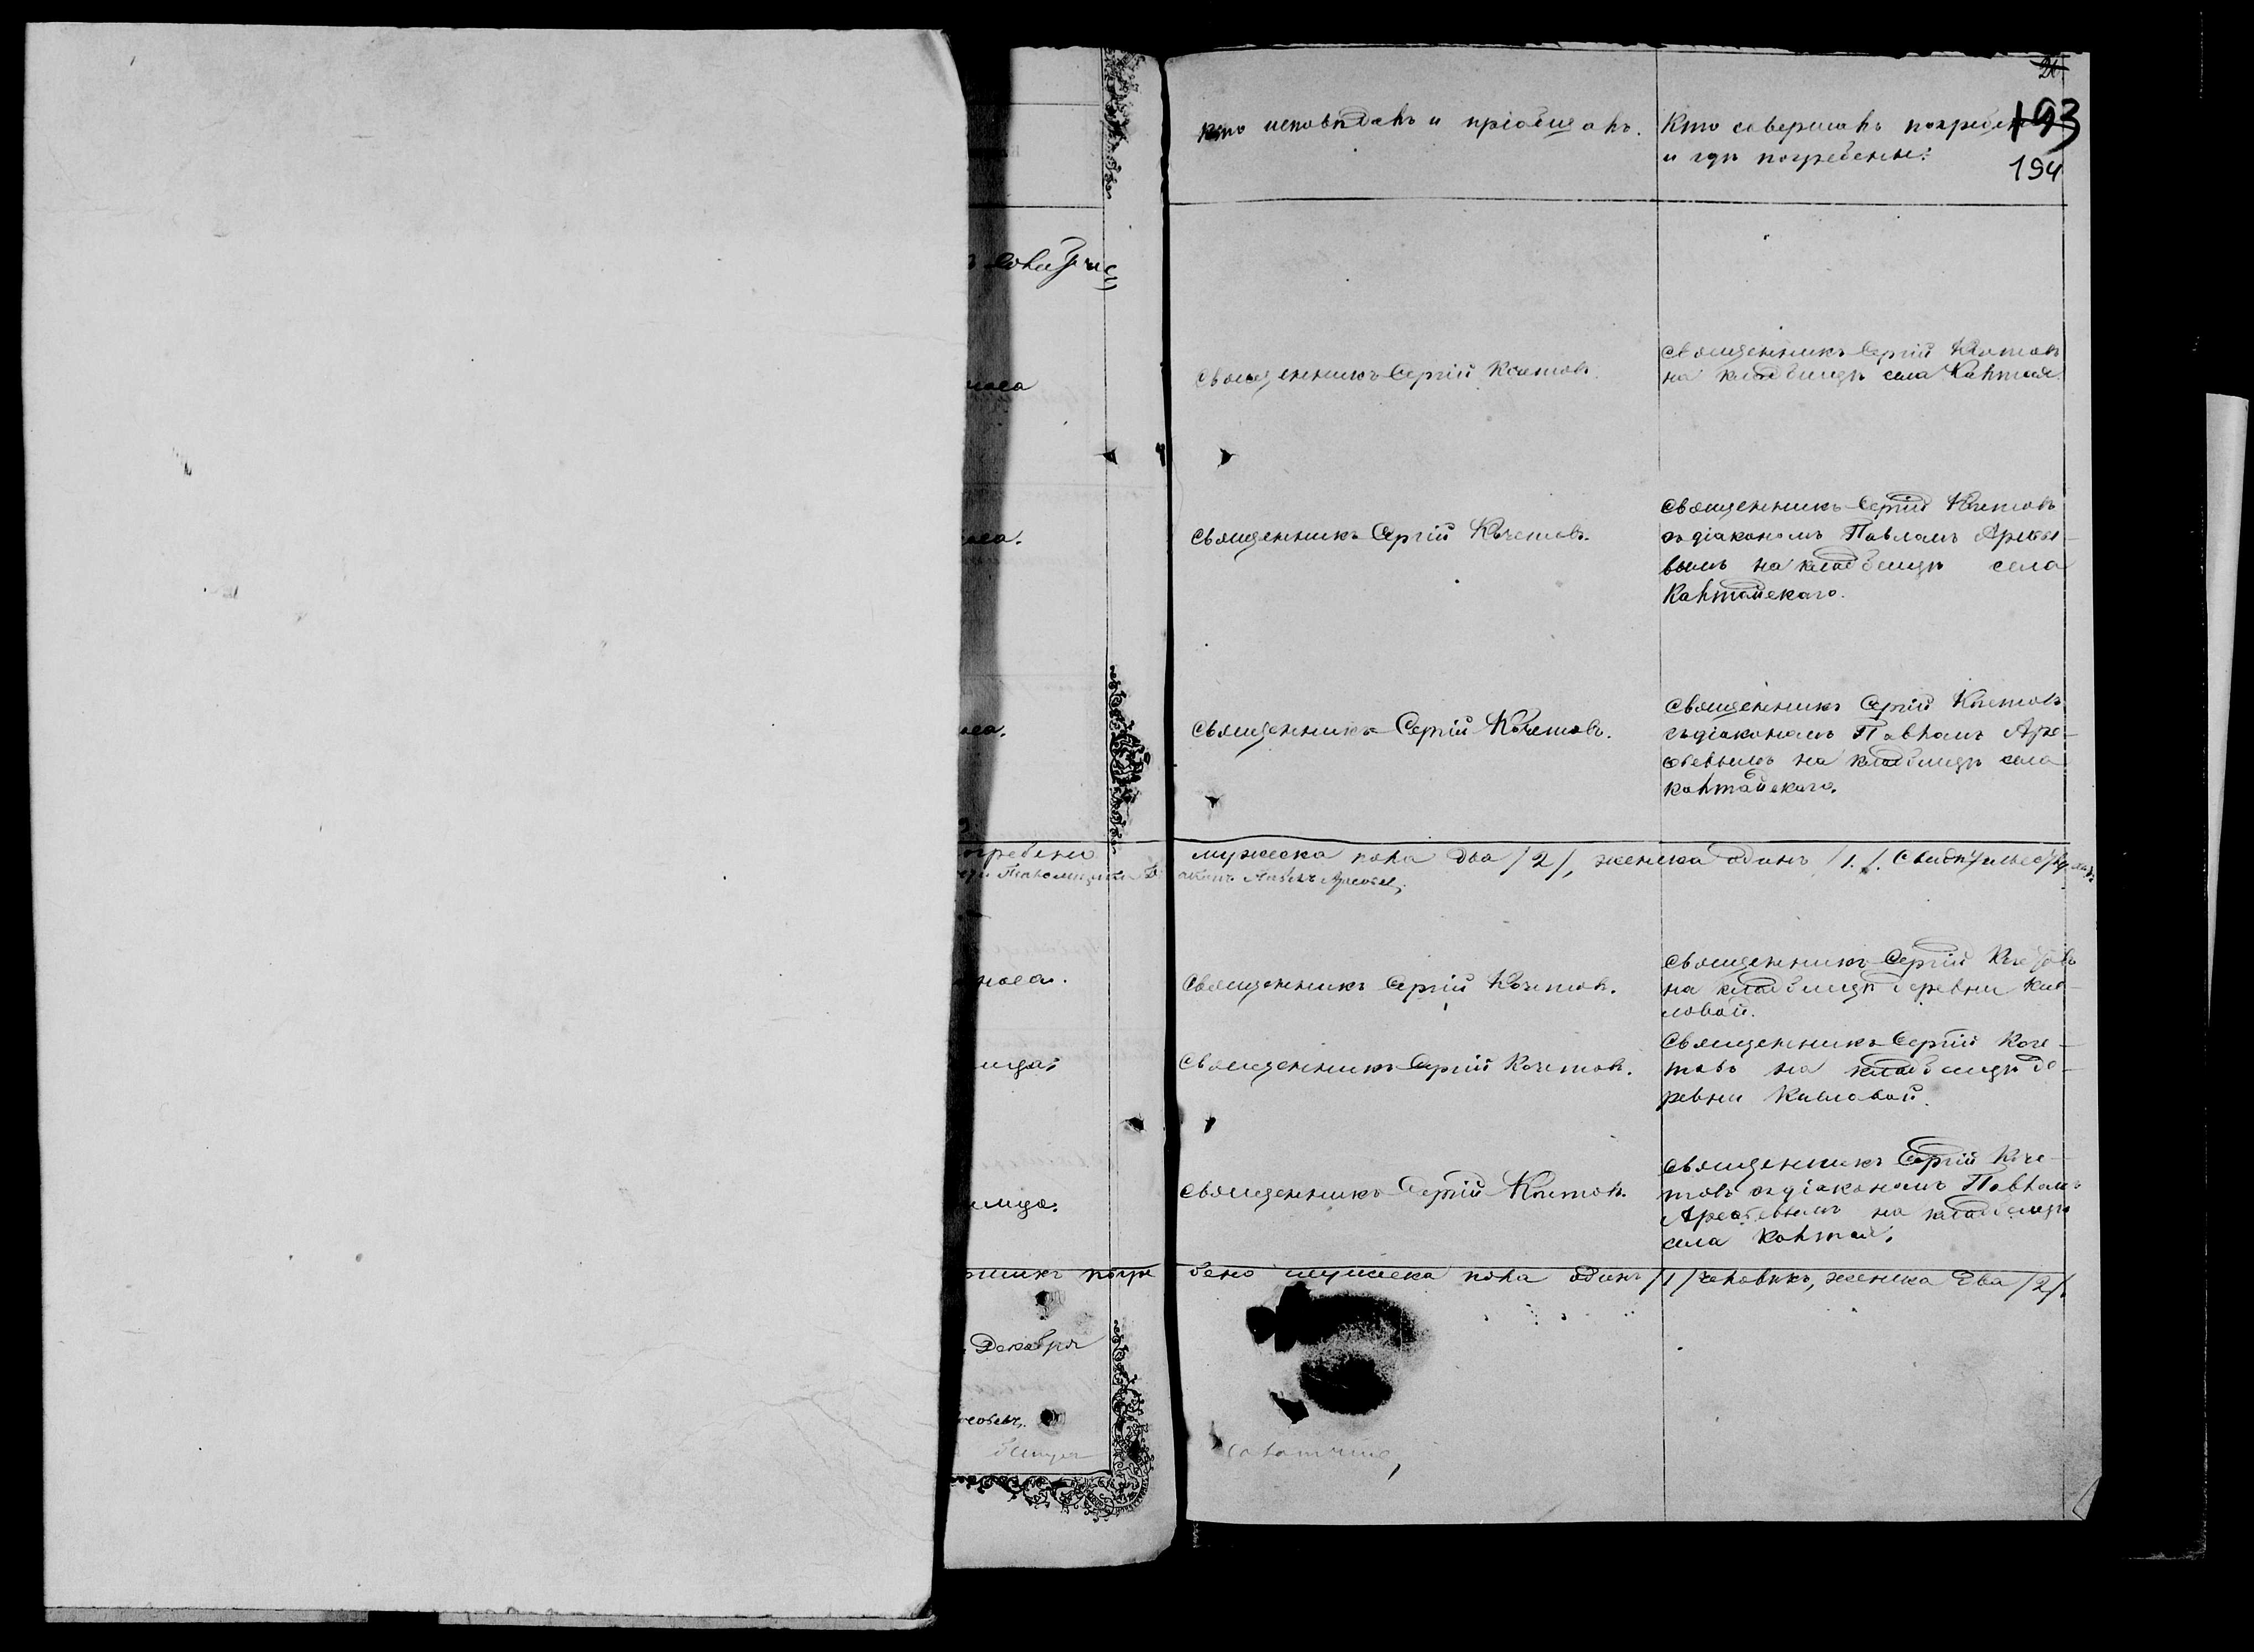 26
193
194
Кто исповѣдалъ и пріобщалъ.
Кто совершалъ погребеніе
и гдѣ погребены:
Священникъ Сергій Кочетовъ.
Священникъ Сергій Кочетовъ
на кладбищѣ села Калтая.
Священникъ Сергій Кочетовъ.
Священникъ Сергій Кочетовъ
съ діакономъ Павломъ Арсѳь-
вымъ на кладбищѣ села
Калтайскаго.
Священникъ Сергій Кочетовъ.
Священникъ Сергій Кочетовъ
съ діакономъ Павломъ Арсе-
ѳьевымъ на кладбищѣ села
Калтайскаго.
огребено мужеска пола два /2/, женска одинъ /1./.
Священникъ Сергій Кочетовъ.
Священникъ Сергій Кочетовъ
на кладбищѣ деревни Кис-
ловой.
Священникъ Сергій Кочетовъ.
Священникъ Сергій Коче-
товъ на кладбищѣ де-
ревни Кисловой.
мца.
Священникъ Сергій Кочетовъ.
Священникъ Сергій Коче-
товъ съ діакономъ Павломъ
на кладбищѣ
села Калтая.
погре бено мужеска пола одинъ /1/ человѣкъ, женска два /2/.
Декабря